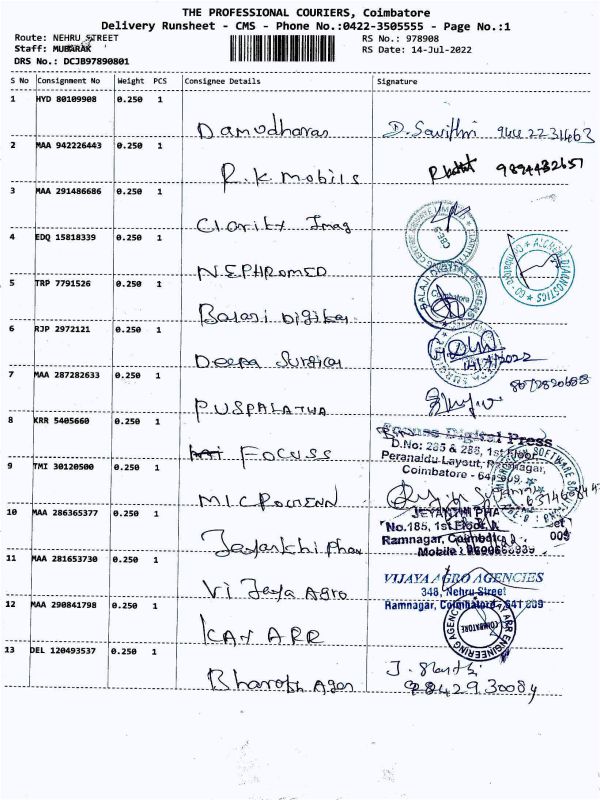 THE PROFESSIONAL COURIERS, Coimbatore
Delivery Runsheet - CMS - Phone No.:0422-3505555 - Page No.:1
Route: NEHRU STREET RS No.: 978908
Staff: MUBARAK RS Date: 14-Jul-2022
DRS No.: DCJB97890801
S No Consignment No Weight PCS Consignee Details Signature
1 HYD 80109908 0.250 1
Damodharan D. Savithri 9442231463
2 MAA 942226443 0.250 1
R.K mobils 9894432657
3 MAA 291486686 0.250 1
Clarity Imag
4 EDQ 15818339 0.250 1
NEPHROMED
5 TRP 7791526 0.250 1
BALAJI DIGITAL DESIGNS
Coimbatore
Balaji Digital
6 RJP 2972121 0.250 1
Deepa Surgical 14/7/2022
7 MAA 287282633 0.250 1
PUSPALATHA
8 KRR 5405660 0.250 1
Digital Press
D.No: 285 & 286, 1st Floor,
FOCUSS Peranaidu Layout, Ramnagar,
9 TMI 30120500 0.250 1 Coimbatore - 641 009.
MICROGENN
10 MAA 286365377 0.250 1
No.185, 1st Floor, A
Ramnagar, Coimbatore 009
Jeyanthi Phar Mobile :
11 MAA 281653730 0.250 1
VIJAYA AGRO AGENCIES
348, Nehru Street
Vijaya Agro Ramnagar, Coimbatore - 641 009
12 MAA 290841798 0.250 1
KAY ARR
13 DEL 120493537 0.250 1
Bharath Agen 9842930084